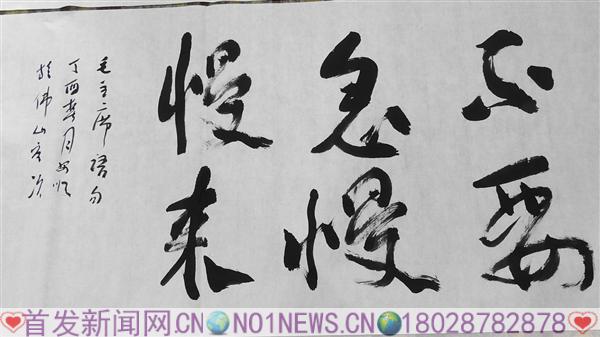 不要
急慢
慢来
毛主席語句
丁酉春月
於佛山客次
首发新闻网.CN🌏NO1NEWS.CN🌏18028782878